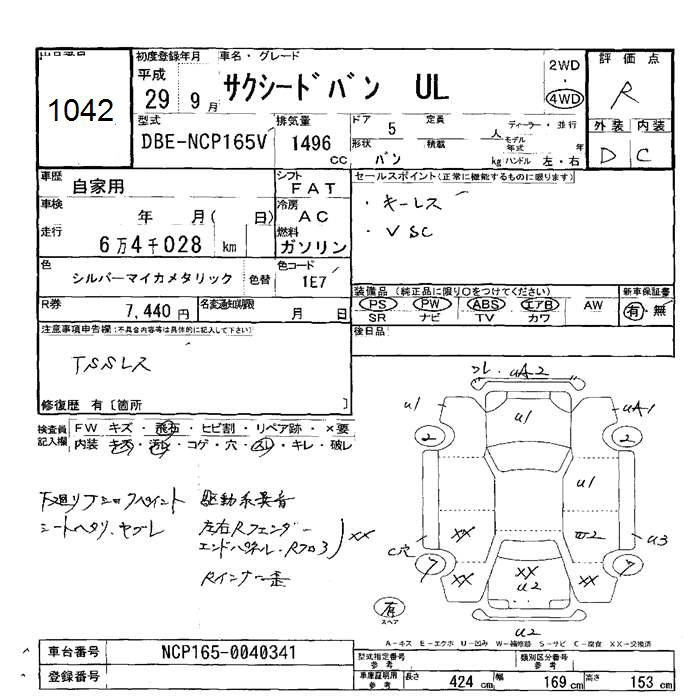 出品番号 初度登録年月 車名・グレード 評価点
1042 平成 29 9月 サクシードバン UL 2WD・4WD R
型式 排気量 ドア 定員 ディーラー・並行 外装 内装
DBE-NCP165V 1496 CC 5 人 モデル年式 年 D C
形状 バン 積載 kg ハンドル 左・右
車歴 自家用 シフト FAT セールスポイント(正常に機能するものに限ります)
車検 年 月( 日) 冷房 AC ・キーレス
走行 6万4千028 km 燃料 ガソリン ・VSC
色 シルバーマイカメタリック 色替 色コード 1E7
装備品(純正品に限り○をつけてください) 新車保証書
PS PW ABS エアB AW 有・無
SR ナビ TV カワ
R券 7,440円 名変通知期限 月 日
後日品
注意事項申告欄:(不具合内容等は具体的に記入して下さい)
TSSレス
修復歴 有〔箇所 〕
検査員記入欄 FW キズ・飛石・ヒビ割・リペア跡・×要
内装 キズ・汚レ・コゲ・穴・スレ・キレ・破レ
下廻り
シートヘタリ、ヤブレ
駆動系異音
左右Rフェンダー
エンドパネル・Rフロア XX
Rインナー歪
コレ・UA2
U1 U1 UA1
2 2
U1
XX U2
C穴 U3
7 XX XX XX 7
U2
有 スペア
U2
A-キズ E-エクボ U-凹み W-補修跡 S-サビ C-腐食 XX-交換済
車台番号 NCP165-0040341
登録番号
型式指定番号 参考 類別区分番号 参考
車庫証明用 参考 長さ 424 cm 幅 169 cm 高さ 153 cm